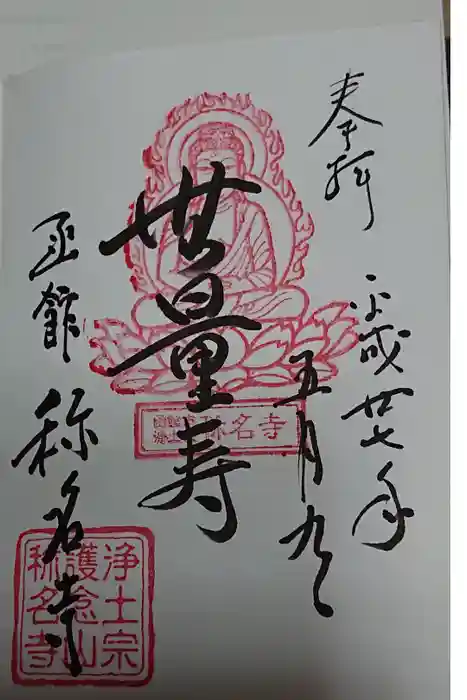 奉拝
平成廿七年
五月九日
無量寿
函館 称名寺
函館 浄土宗 称名寺
浄土宗
護念山
称名寺